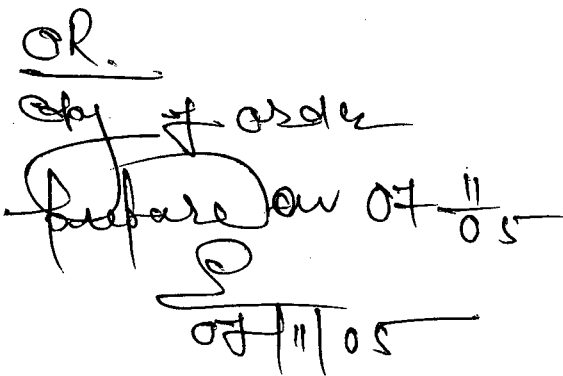 OR.
Copy of order
prepare on 07-11-05
07/11/05